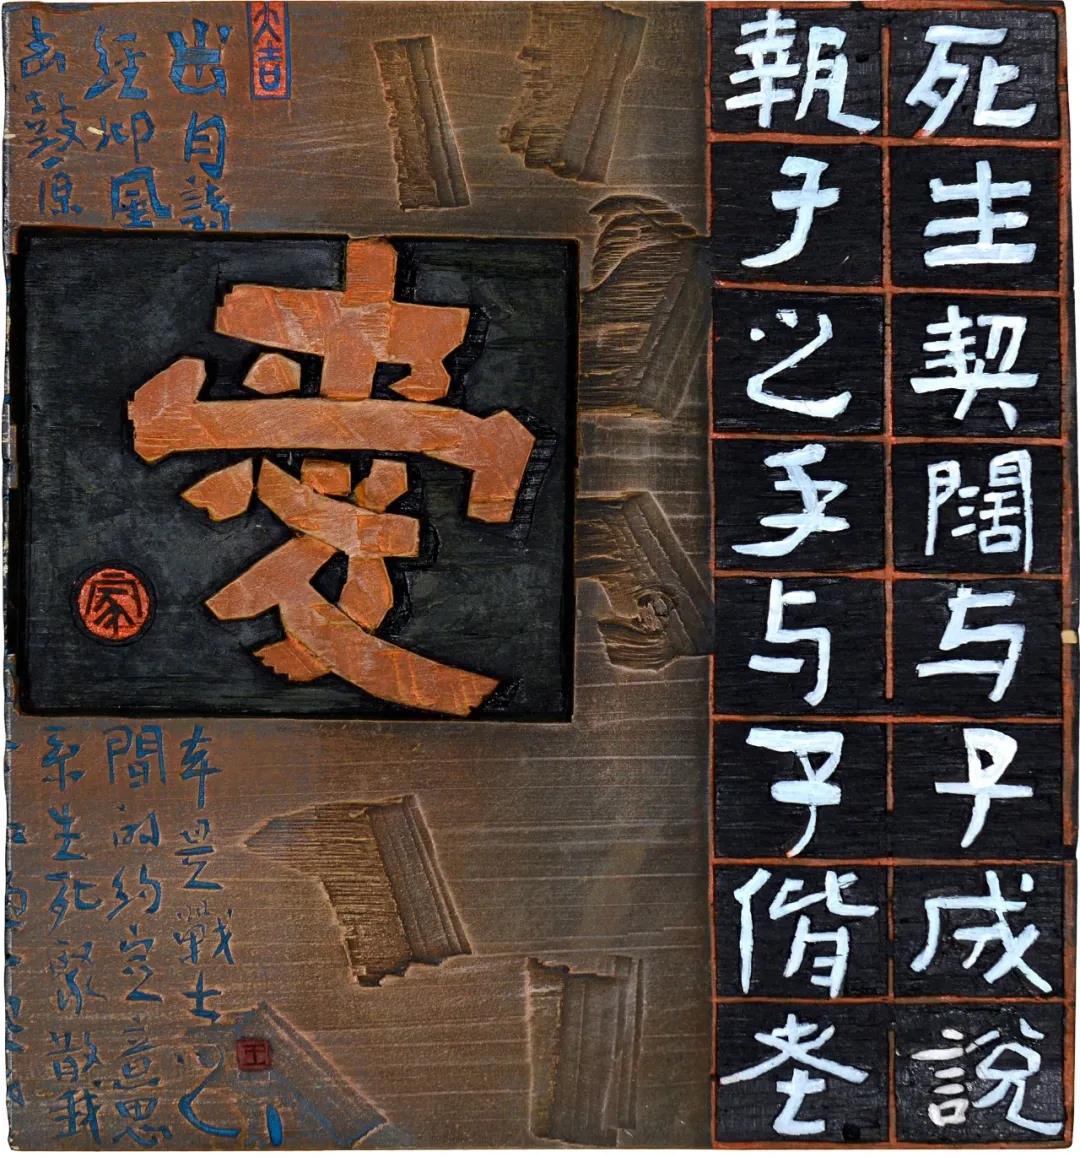 死生契闊与子成説
執子之手与子偕老
大吉
出自詩
經邶風
击鼓原
愛
家
本是戰士们
間的約定意思
系生死聚散我
王